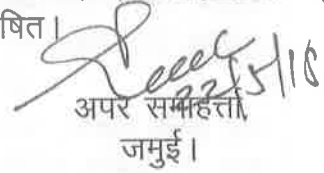 षित।
22/5/18
अपर समाहर्त्ता,
जमुई।